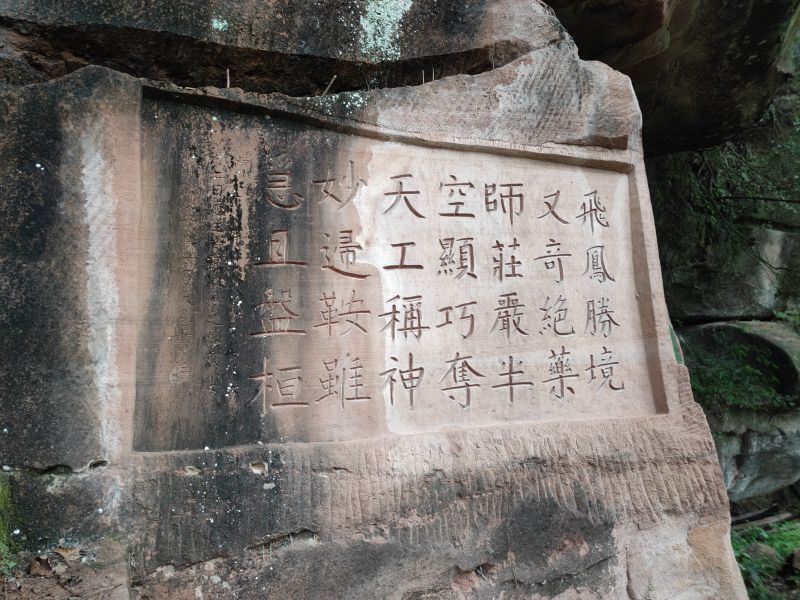 飛鳳勝境
又奇絕藥
師莊嚴半
空顯巧奪
天工稱神
妙歸鞍雖
忌且盤桓